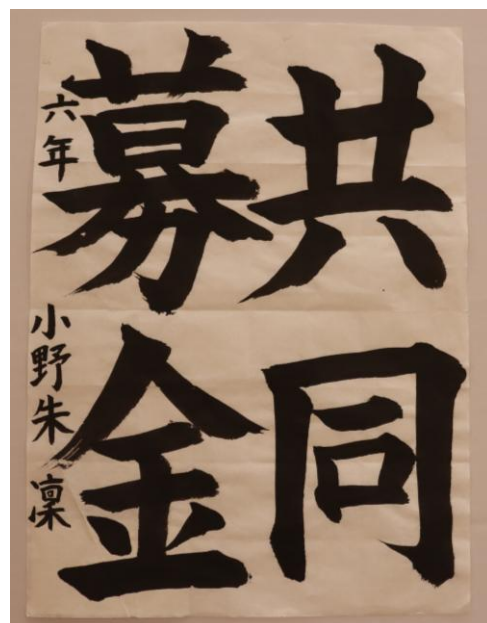 共同
募金
六年
小野朱凜